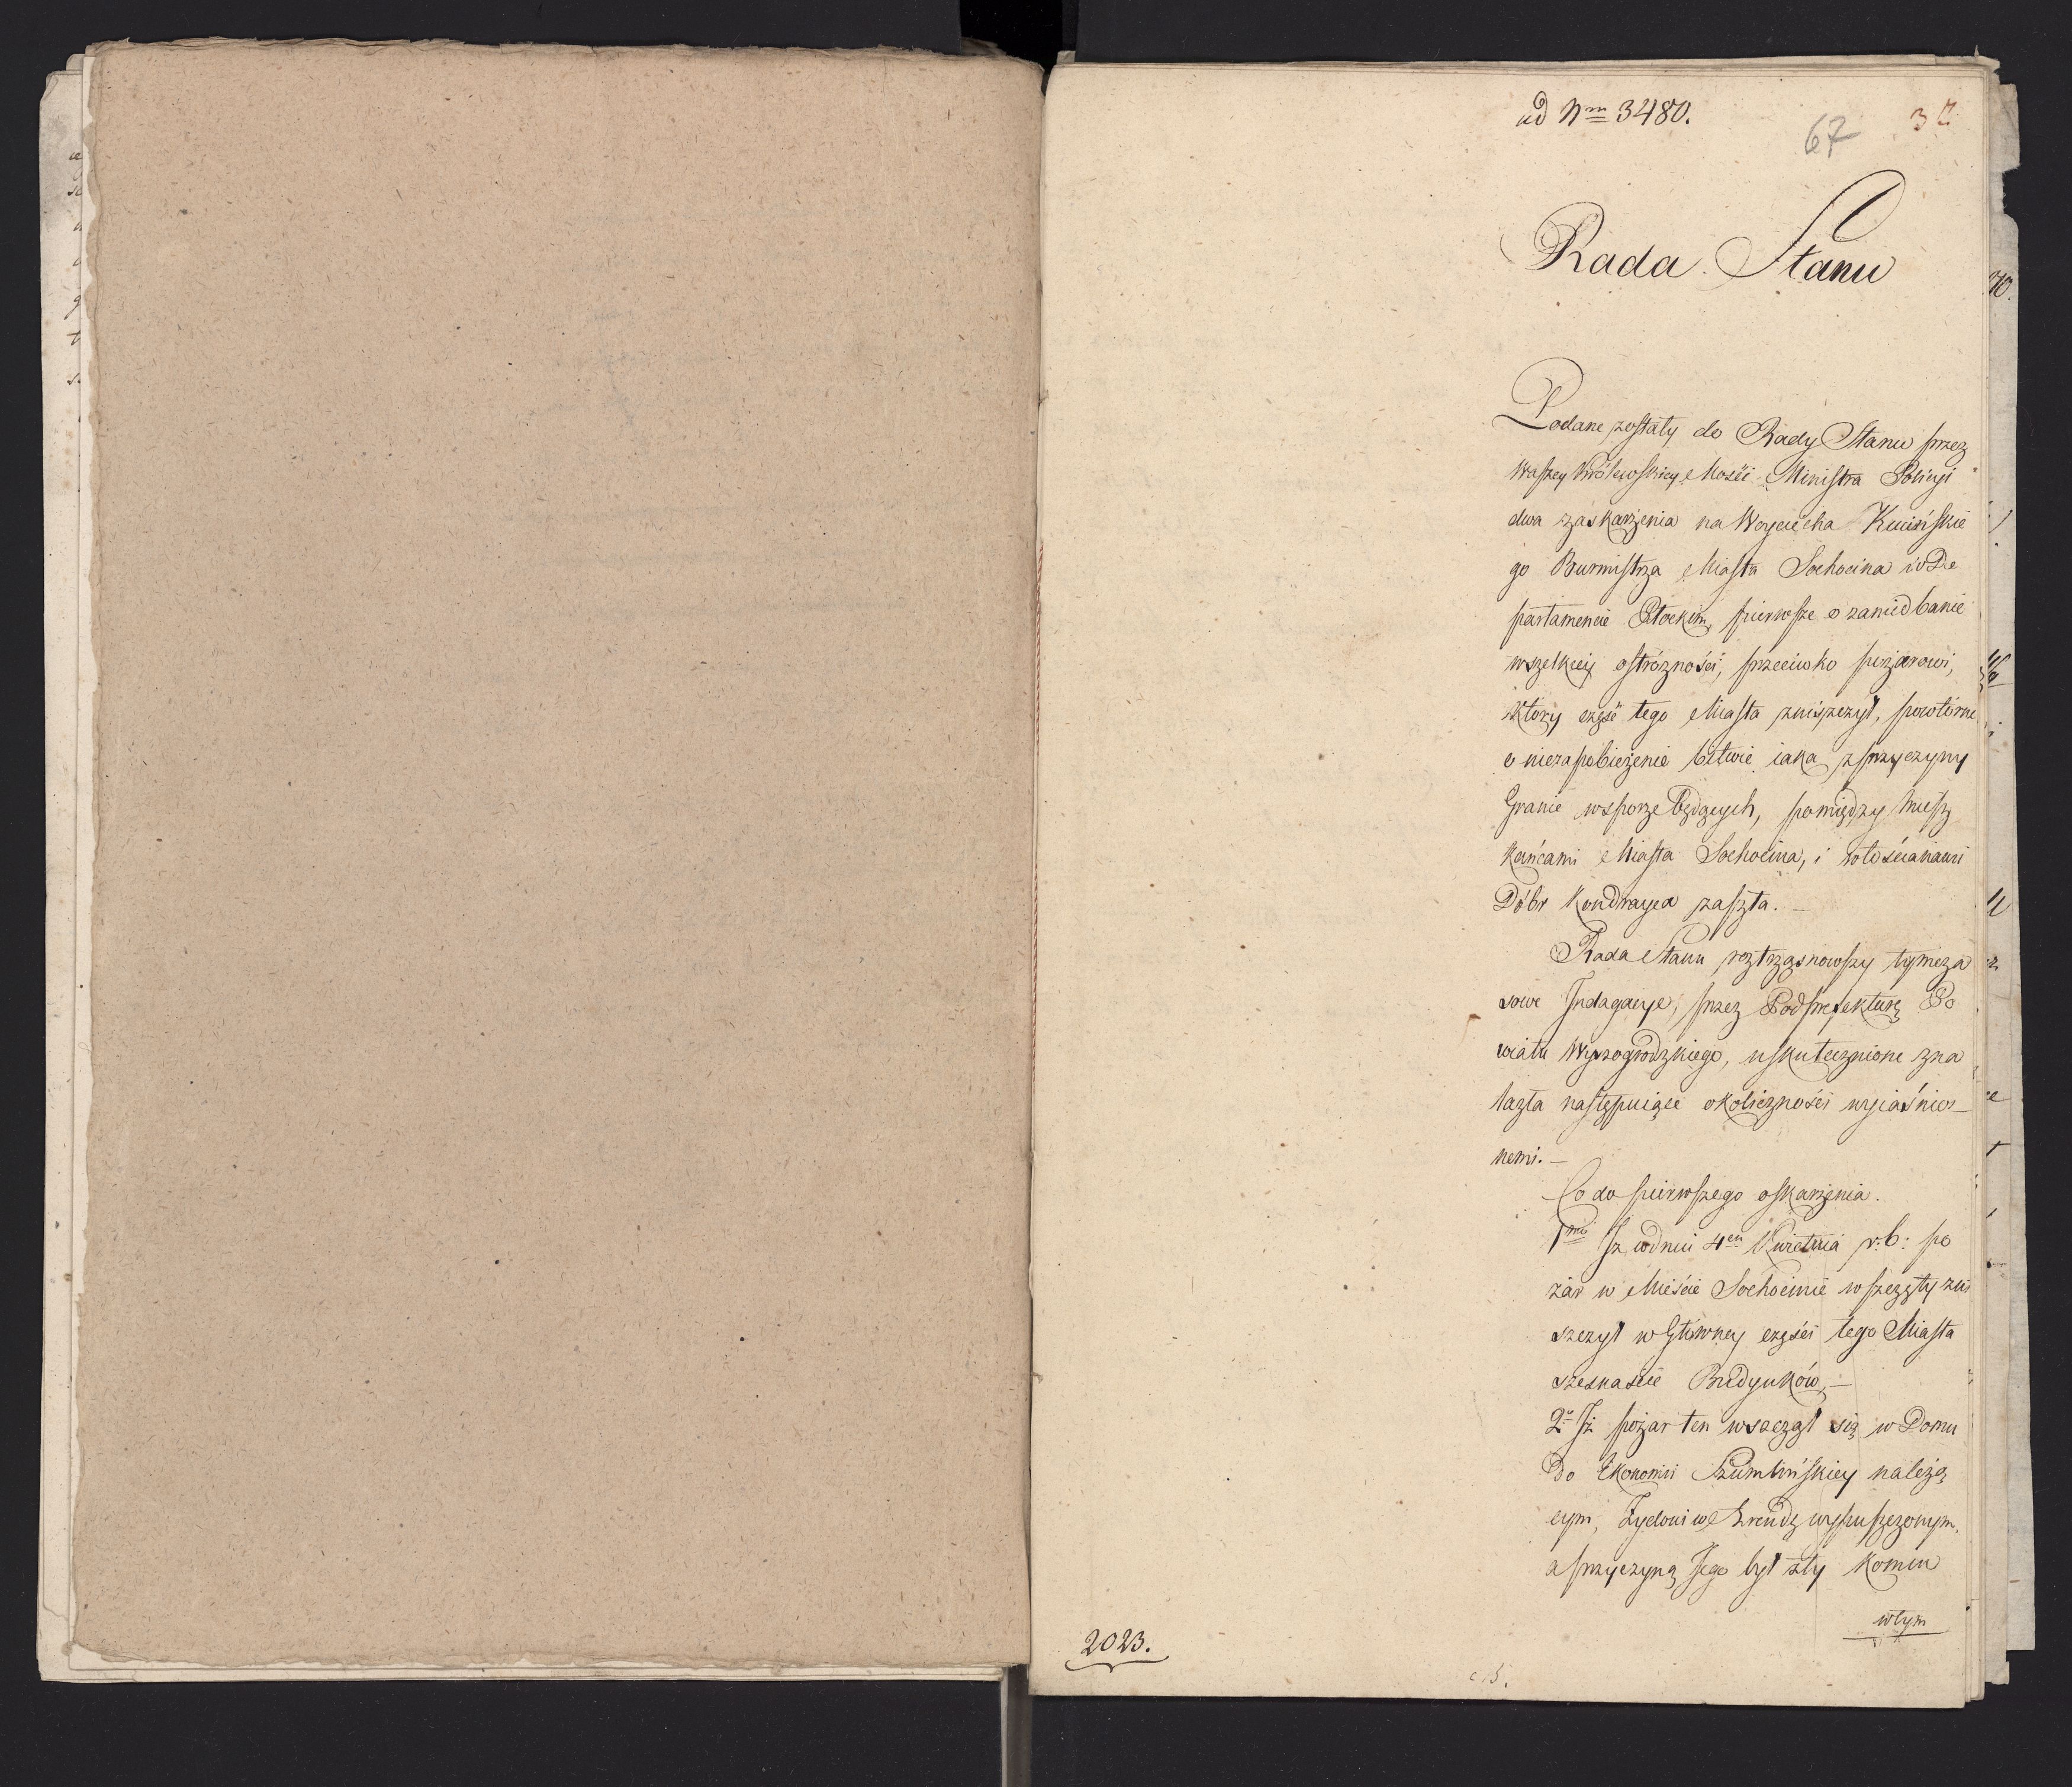 ad Nm 3480.
67 37
Rada Stanu
Podane zostały do Rady Stanu przez
Waszey Królewskiey Mości Ministra Policyi
dwa zaskarżenia na Woyciecha Kuciński
go Burmistrza Miasta Sochocina w De
partamencie Płockim, pierwsze o zaniedbanie
wszelkiey ostrózności, przeciwko pożarowi,
który część tego Miasta zniszczył, powtórne
o niezapobieżenie bitwie iaka z przyczyny
Granic w sporze będących, pomiędzy miesz
kańcami Miasta Sochocina, i włościanami
Dóbr Kondrayca zaszła. —
Rada Stanu roztrząsnowszy tymcza
sowe Indagacye, przez Podprefekturę Po
wiatu Wyszogrodzkiego, uskutecznione zna
lazła następuiące okoliczności wyiaśnio—
nemi. —
Co do pierwszego oskarżenia.
1mo Iż w dniu 4en Kwietnia r: b: po
żar w Mieście Sochocinie wszczęty zni
szczył w Głównej części tego Miasta
szesnaście Budynków, —
2o Iż pożar ten wszczął się w Domu
Do Ekonomii Szumlińskiey należą
cym, Żydowi w Arendę wypuszczonym,
a przyczyną Jego był zły komin
w tym
2023.